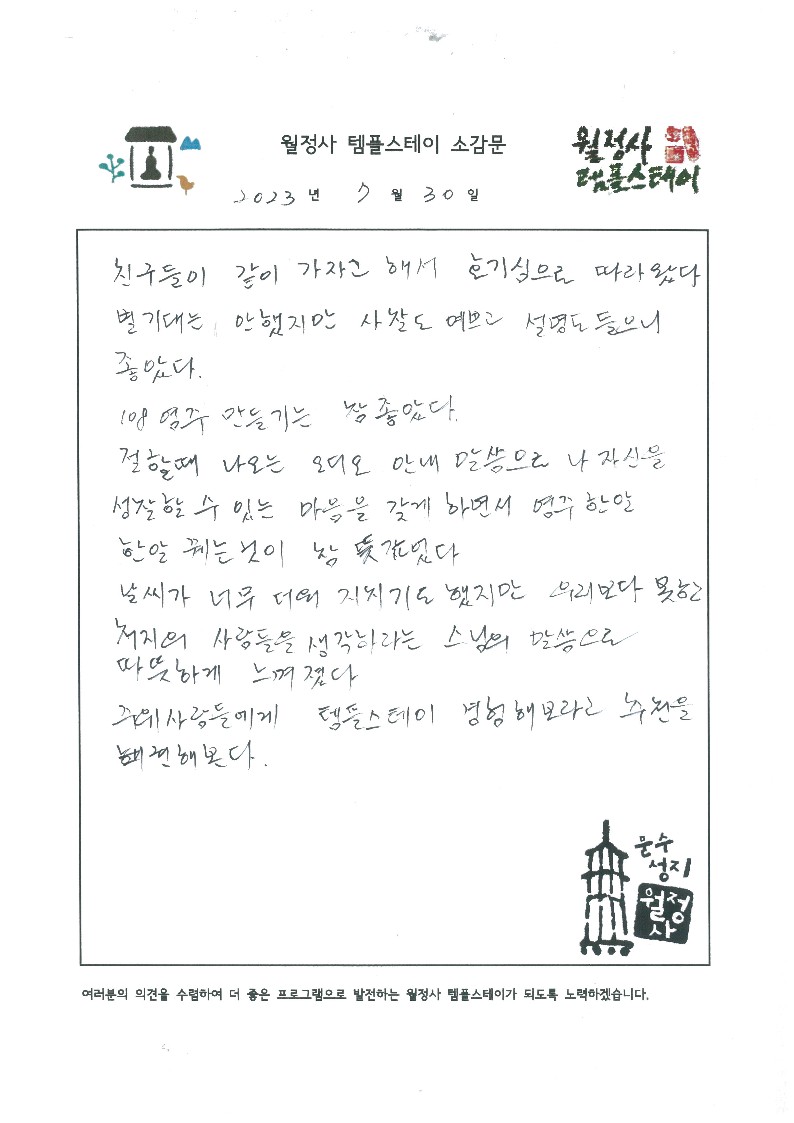 월정사 템플스테이 소감문
월정사
템플스테이
2023 년 7 월 30 일
친구들이 같이 가자고 해서 호기심으로 따라왔다
별기대는 안했지만 사찰도 예쁘고 설명도 들으니
좋았다.
108 염주 만들기는 참 좋았다.
절할때 나오는 오디오 안내 말씀으로 나 자신을
성찰할 수 있는 마음을 갖게 하면서 염주 한알
한알 꿰는것이 참 뜻깊었다
날씨가 너무 더워 지치기도 했지만 우리보다 못한
처지의 사람들을 생각하라는 스님의 말씀으로
따뜻하게 느껴졌다
주위사람들에게 템플스테이 경험해보라고 추천을
해본다.
문수
성지
월정
사
여러분의 의견을 수렴하여 더 좋은 프로그램으로 발전하는 월정사 템플스테이가 되도록 노력하겠습니다.